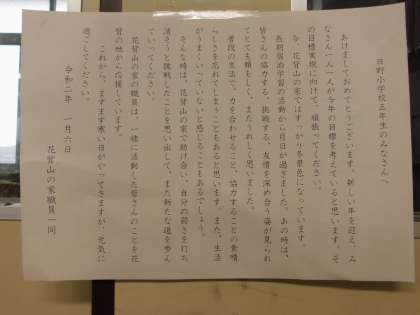 日野小学校五年生のみなさんへ
あけましておめでとうございます。新しい年を迎え、み
なさん一人一人が今年の目標を考えていると思います。そ
の目標実現に向けて、頑張ってください。
今、花背山の家ではすっかり冬景色になっています。
長期宿泊学習の活動から月日が過ぎました。あの時は、
皆さんの協力する、挑戦する、友情を深め合う姿が見られ
てとても頼もしく、またうれしく思いました。
普段の生活で、力を合わせること、協力することの素晴
らしさを忘れてしまうこともあると思います。また、生活
がうまくいっていないと感じることもあるでしょう。
そんな時は、花背山の家で助け合い、自分の弱さを打ち
消そうと挑戦したことを思い出して、また新たな道を歩ん
でいってください。
花背山の家の職員は、一緒に活動した皆さんのことを花
背の地から応援しています。
これから、ますます寒い日がやってきますが、元気に
過ごしてください。
令和二年 一月六日
花背山の家職員一同